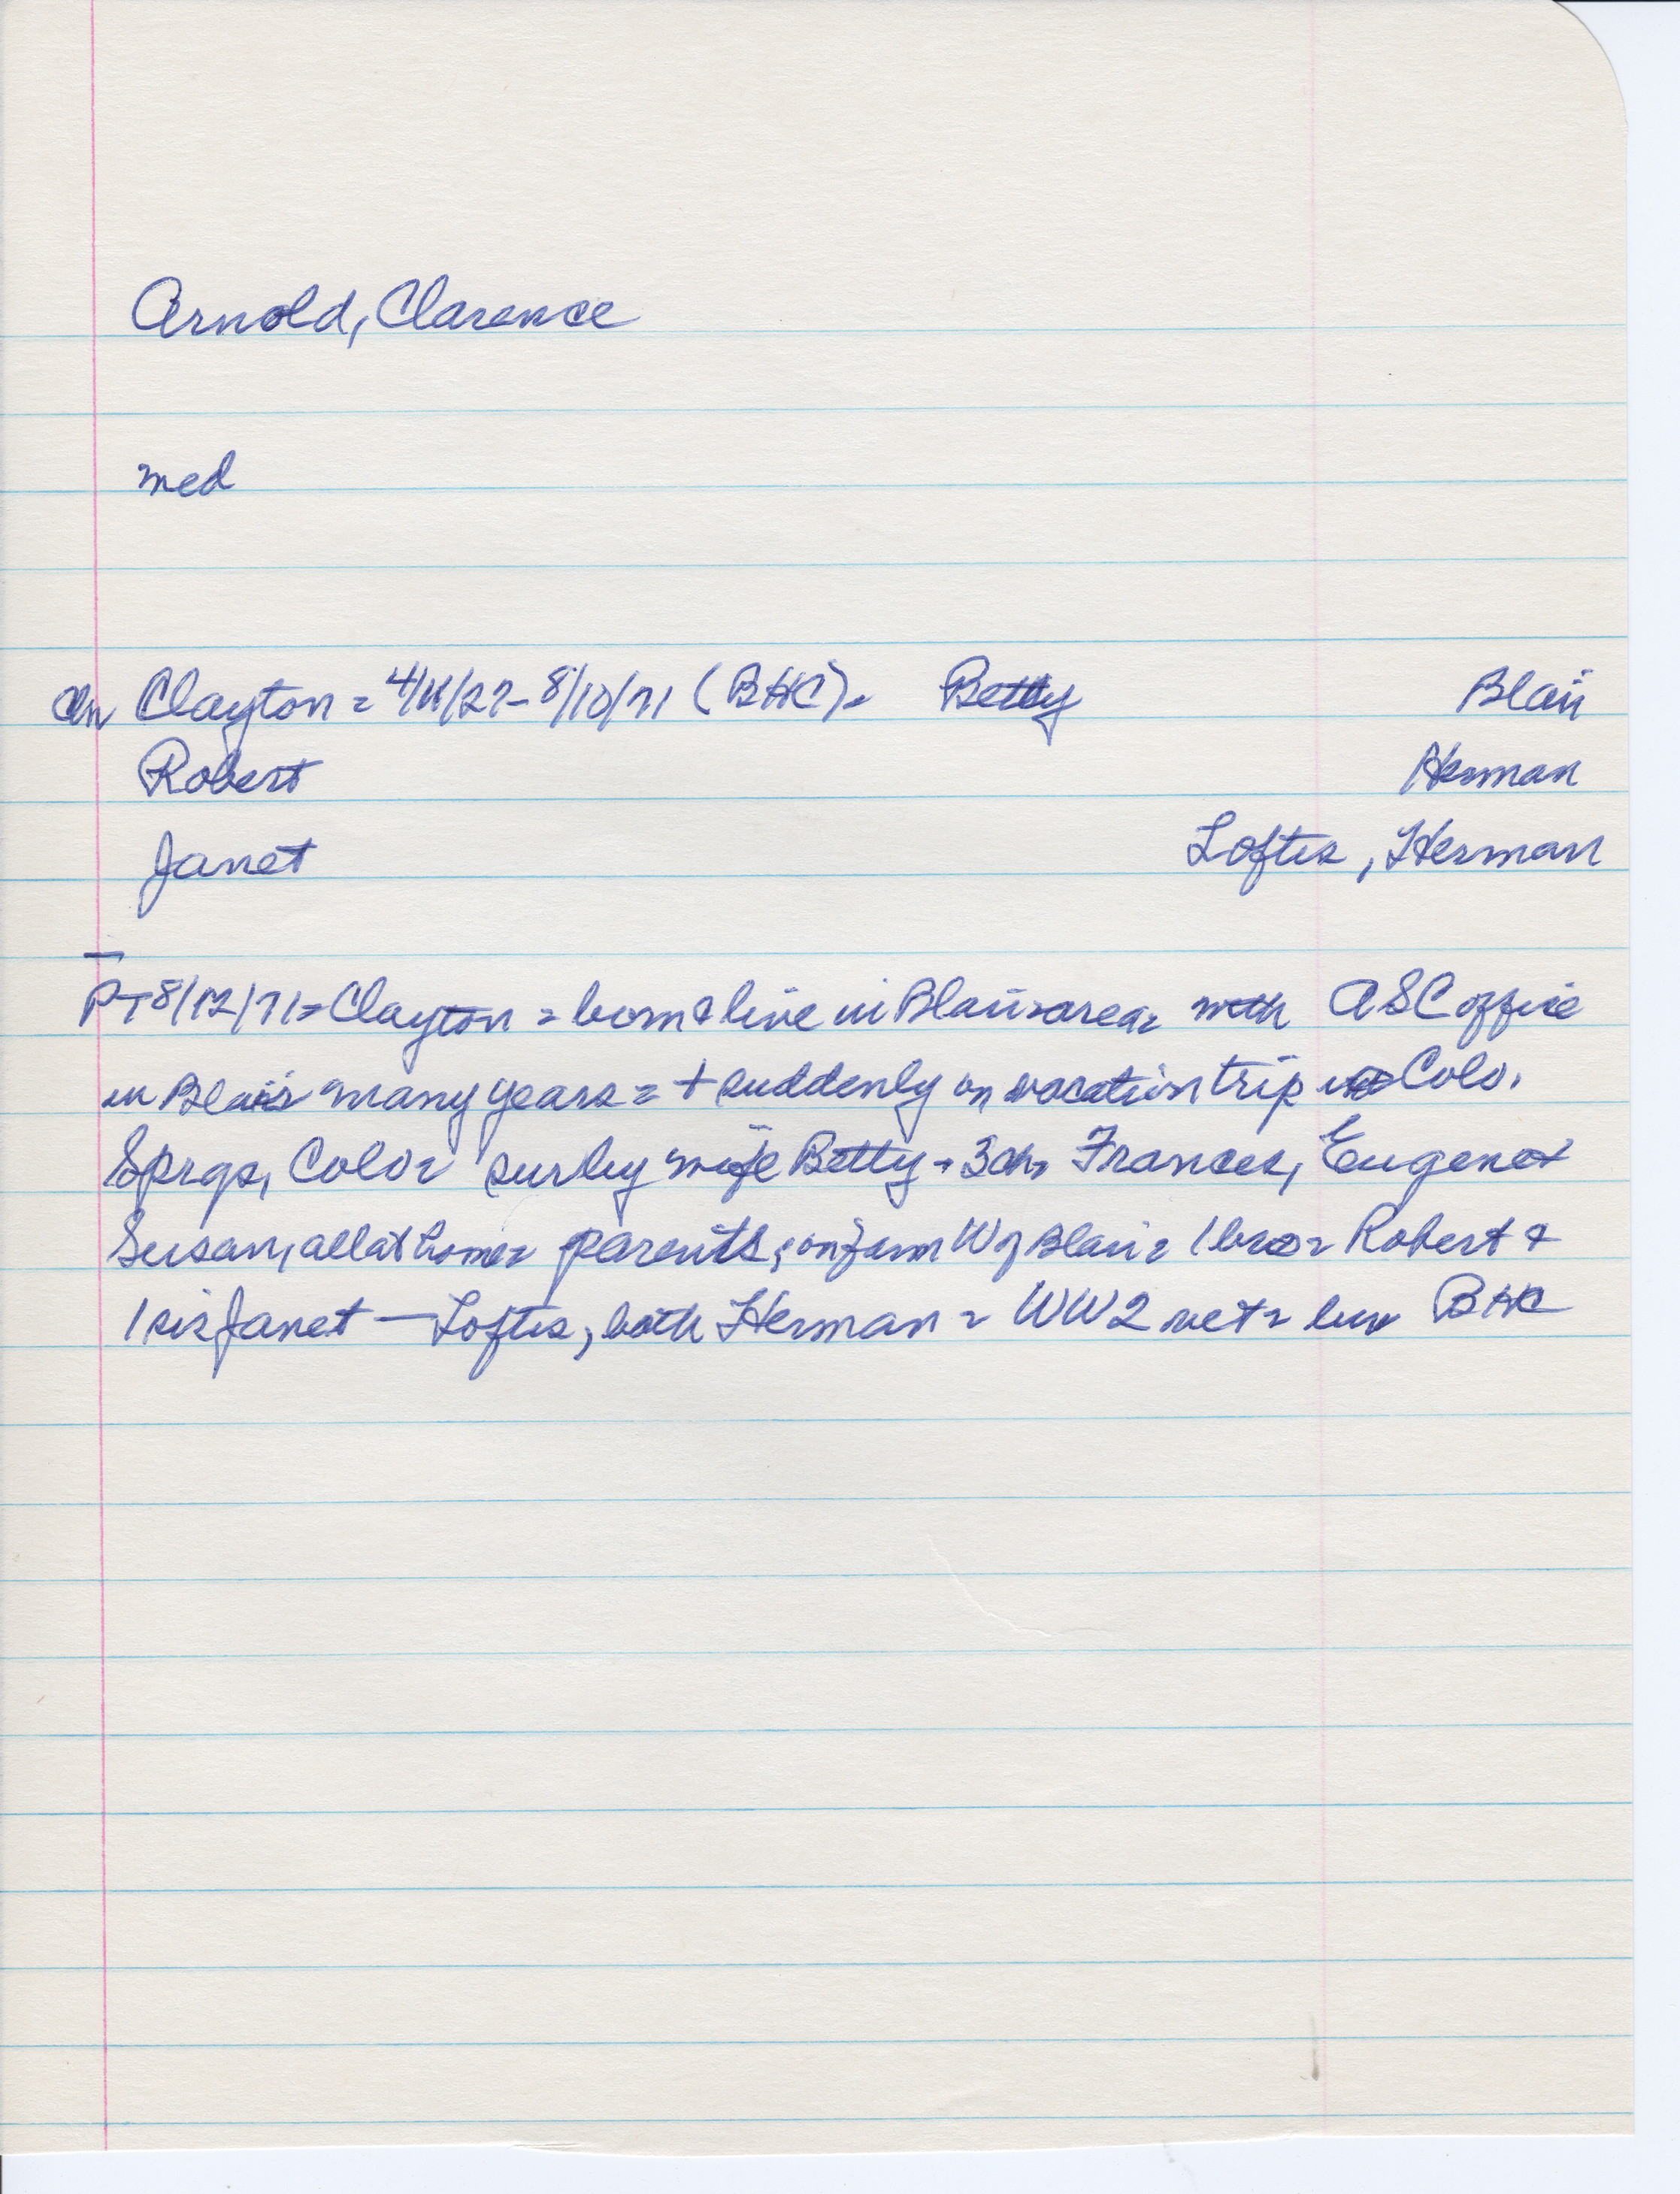 Arnold, Clarence
med
Ch Clayton = 4/11/27 - 8/10/71 (BHC) = Betty Blair
Robert Herman
Janet Loftis, Herman
PT 8/12/71 = Clayton = born & live in Blair area = with ASC office
in Blair many years = + suddenly on vacation trip Colo.
Sprgs, Colo = surby wife Betty + 3 ch = Frances, Eugene &
Susan, all at home = parents, on farm W of Blair = 1 bro = Robert &
1 sis Janet — Loftis, both Herman = WW2 vet = bur BHC